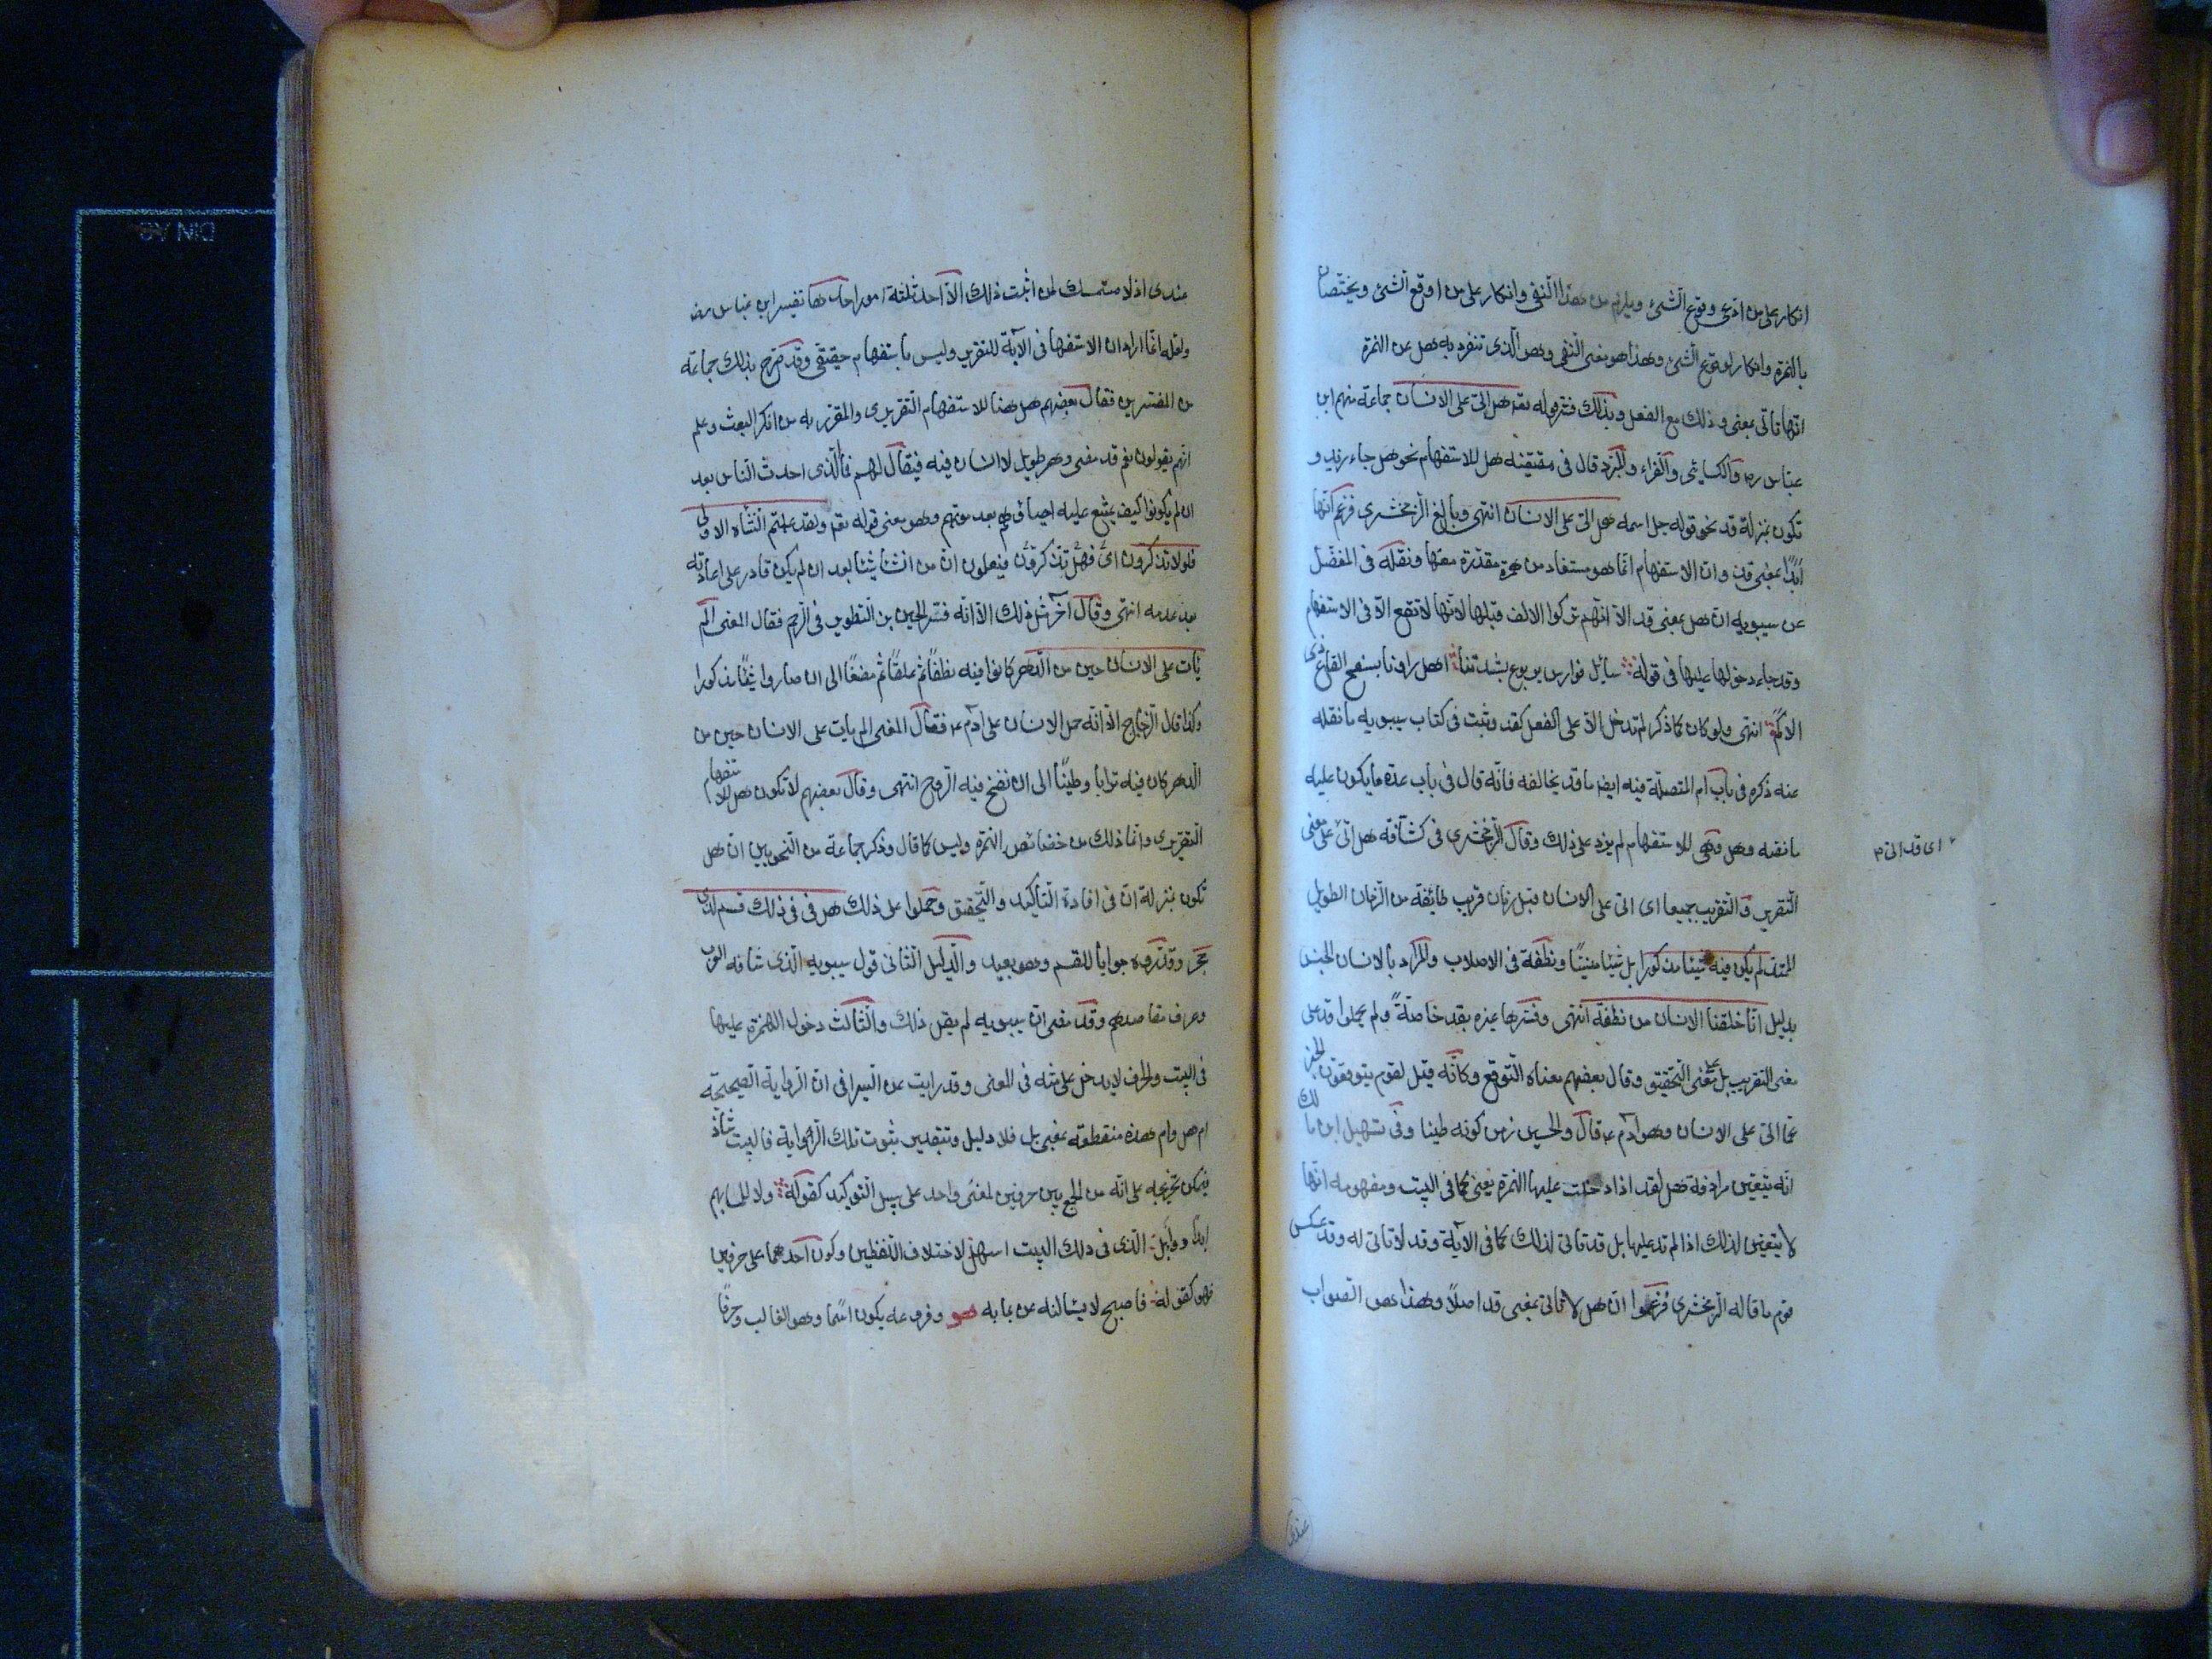 انكار على من ادعى وقوع الشئ ويلزم من هذا النفى وانكار على من اوقع الشئ ويختصان
بالهمزة وانكار لوقوع الشئ وهذا هو معنى النفى وهو الذى تنفرد به هل عن الهمزة
انها تأتى بمعنى وذلك مع الفعل وبذلك فسر قوله تعه هل اتى على الانسان جماعة منهم ابن
عباس رض والكسائى والفراء والمبرد قال فى مقتضبه هل للاستفهام نحو هل جاء زيد و
تكون بمنزلة قد نحو قوله جل اسمه هل اتى على الانسان انتهى وبالغ الزمخشرى فزعم انها
ابدا بمعنى قد وان الاستفهام انما هو مستفاد من همزة مقدرة معها ونقله فى المفصل
عن سيبويه ان هل بمعنى قد الا انهم تركوا الالف قبلها لانها لا تقع الا فى الاستفهام
وقد جاء دخولها عليها فى قوله سائل فوارس يربوع بشدتنا اهل راونا بسفح القاع ذى
الاكم انتهى ولو كان كما ذكر لم تدخل الا على الفعل كقد وثبت فى كتاب سيبويه ما نقله
عنه ذكره فى باب ام المتصلة فيه ايضا ما قد يخالفه فانه قال فى باب عدة ما يكون عليه
ما نصه وهل وهى للاستفهام لم يزد على ذلك وقال الزمخشرى فى كشافه هل اتى على معنى
اى قد اتى م
التقرير والتقريب جميعا اى اتى على الانسان قبل زمان قريب طائفة من الزمان الطويل
الممتد لم يكن فيه شيئا مذكورا بل شيئا منسيا ونطفة فى الاصلاب والمراد بالانسان الجنس
بدليل انا خلقنا الانسان من نطفة انتهى وفسرها غيره بقد خاصة ولم يحملوا قد على
معنى التقريب بل على معنى التحقيق وقال بعضهم معناه التوقع وكأنه قيل لقوم يتوقعون الخبر
عما اتى على الانسان وهو آدم عم قال والحين زمن كونه طينا وفى تسهيل ابن مالك
انه يتعين مرادفة هل لقد اذا دخلت عليها الهمزة يعنى كما فى البيت ومفهومه انها
لا يتعين لذلك اذا لم تدخل عليها بل قد تاتى لذلك كما فى الآية وقد لا تاتى له وقد عكس
قوم ما قاله الزمخشرى فزعموا ان هل لا تاتى بمعنى قد اصلا وهذا هو الصواب
عندى
عندى اذ لا متمسك لمن اثبت ذلك الا احد ثلثة امور احدها تفسير ابن عباس رض
ولعله انما اراد ان الاستفهام فى الآية للتقرير وليس باستفهام حقيقى وقد صرح بذلك جماعة
من المفسرين فقال بعضهم هل هنا للاستفهام التقريرى والمقرر به من انكر البعث وعلم
انهم يقولون نعم قد مضى دهر طويل لا انسان فيه فيقال لهم فالذى احدث الناس بعد
ان لم يكونوا كيف يمتنع عليه احياؤهم بعد موتهم وهو معنى قوله تعه ولقد علمتم النشأة الاولى
فلولا تذكرون اى فهلا تذكرون فيعلمون ان من انشأ شيئا بعد ان لم يكن قادر على اعادته
بعد عدمه انتهى وقال آخر مثل ذلك الا انه فسر الحين بزمن التطوير فى الرحم فقال المعنى الم
يأت على الانسان حين من الدهر كانوا فيه نطفا ثم علقا ثم مضغا الى ان صاروا شيئا مذكورا
وكذا قال الزجاج الا انه حمل الانسان على آدم عم فقال المعنى الم يأت على الانسان حين من
الدهر كان فيه ترابا وطينا الى ان نفخ فيه الروح انتهى وقال بعضهم لا تكون هل للاستفهام
التقريرى وانما ذلك من خصائص الهمزة وليس كما قال وذكر جماعة من النحويين ان هل
تكون بمنزلة ان فى افادة التأكيد والتحقيق وحملوا على ذلك هل فى فى ذلك قسم لذى
حجر وقدروه جوابا للقسم وهو بعيد والدليل الثانى قول سيبويه الذى شافه العرب
وعرف مقاصدهم وقد مضى ان سيبويه لم يقل ذلك والثالث دخول الهمزة عليها
فى البيت والحرف لا يدخل على مثله فى المعنى وقد رايت عن السيرافى ان الرواية الصحيحة
ام هل وام هذه منقطعة بمعنى بل فلا دليل وبتقدير ثبوت تلك الرواية فالبيت شاذ
فيمكن تخريجه على انه من الجمع بين حرفين لمعنى واحد على سبيل التوكيد كقوله ولا للما بهم
ابدا دواء بل الذى فى ذلك البيت اسهل لاختلاف اللفظين وكون احدهما على حرفين
فهو كقوله فاصبح لا يسالنه عن بما به هو وفروعه يكون اسما وهو الغالب وحرفا